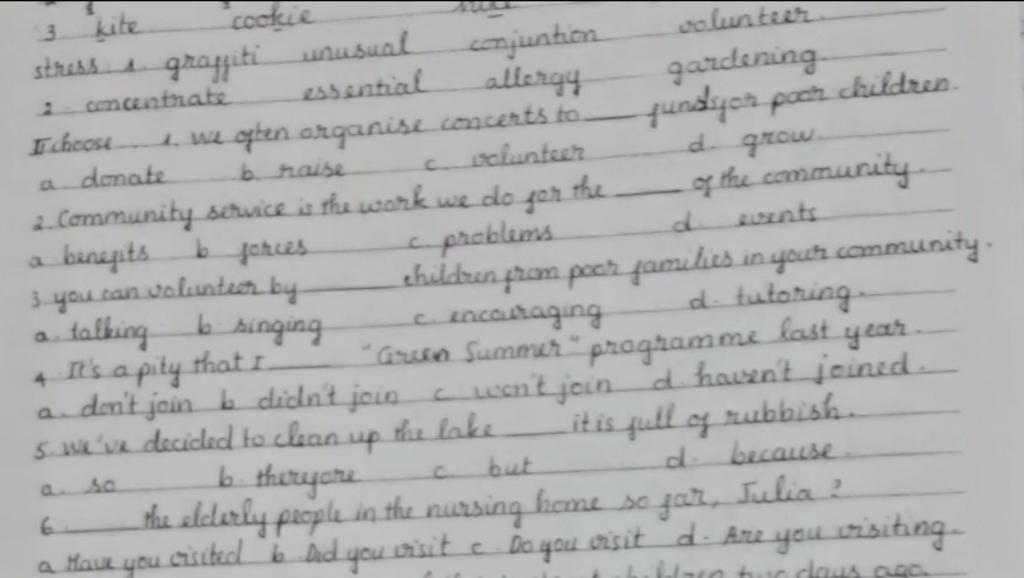 3 kite cookie
stress 1. graffiti unusual conjuntion volunteer.
2. concentrate essential allergy gardening.
II choose ... 1. we often organise concerts to ___ fundsfor poor children.
a. donate b. raise c. volunteer d. grow.
2. Community service is the work we do for the ___ of the community.
a benefits b forces c. problems d. events
3 you can volunteer by ___ children from poor families in your community.
a. talking b singing c. encouraging d. tutoring.
4 It's a pity that I ___ "Green Summer" programme last year.
a. don't join b didn't join c won't join d. haven't joined.
5. We've decided to clean up the lake ___ it is full of rubbish.
a. so b. therefore c but d. because.
6. ___ the elderly people in the nursing home so far, Julia?
a Have you visited b Did you visit c. Do you visit d. Are you visiting.
children two days ago